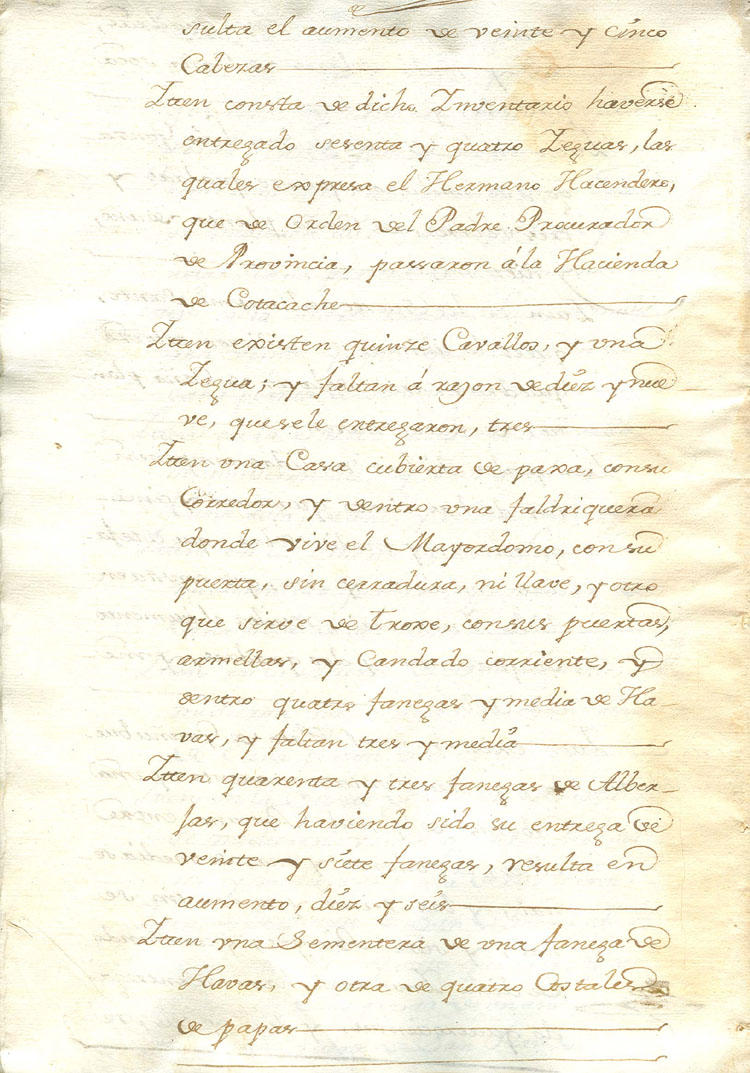 sulta el aumento de veinte y cinco
Cabezas
Iten consta de dicho Inventario haverse
entregado sesenta y quatro Yeguas, las
quales expresa el Hermano Hacendero,
que de Orden del Padre Procurador
de Provincia, passaron á la Hacienda
de Cotacache
Iten existen quinze Cavallos, y una
Yegua; y faltan á razon de diéz y nue
ve, que se le entregaron, tres
Iten una Casa cubierta de paxa, con su
Corredor, y dentro una faldriquera
donde vive el Mayordomo, con su
puerta, sin cerradura, ni llave, y otro
que sirve de troxe, con sus puertas,
armellas, y Candado corriente, y
dentro quatro fanegas y media de Ha-
vas, y faltan tres y media
Iten quarenta y tres fanegas de Alber-
jas, que haviendo sido su entrega de
veinte y siete fanegas, resulta en
aumento, diéz y seis
Iten una Sementera de una fanega de
Havas, y otra de quatro Costales
de papas